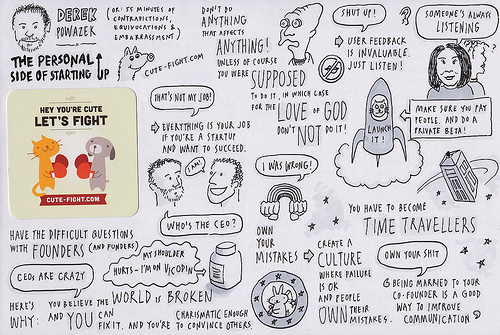 DEREK
POWAZEK
(OR: 55 MINUTES OF
CONTRADICTIONS,
EQUIVOCATIONS &
EMBARRASSMENT)
THE PERSONAL
SIDE OF STARTING UP
CUTE-FIGHT.COM
HEY YOU'RE CUTE
LET'S FIGHT
CUTE-FIGHT.COM
DON'T DO
ANYTHING
THAT AFFECTS
ANYTHING!
UNLESS OF COURSE
YOU WERE SUPPOSED
TO DO IT, IN WHICH CASE
FOR THE LOVE OF GOD
DON'T NOT DO IT!
SHUT UP!
USER FEEDBACK
IS INVALUABLE.
JUST LISTEN!
SOMEONE'S ALWAYS
LISTENING
?
LAUNCH
IT!
MAKE SURE YOU PAY
PEOPLE. AND DO A
PRIVATE BETA!
THAT'S NOT MY JOB!
EVERYTHING IS YOUR JOB
IF YOU'RE A STARTUP
AND WANT TO SUCCEED.
I AM!
WHO'S THE CEO?
I WAS WRONG!
OWN
YOUR
MISTAKES
CREATE A
CULTURE
WHERE FAILURE
IS OK
AND PEOPLE
OWN THEIR
MISTAKES.
YOU HAVE TO BECOME
TIME TRAVELLERS
OWN YOUR SHIT
BEING MARRIED TO YOUR
CO-FOUNDER IS A GOOD
WAY TO IMPROVE
COMMUNICATION
HAVE THE DIFFICULT QUESTIONS
WITH FOUNDERS (AND FUNDERS)
CEOS ARE CRAZY
MY SHOULDER
HURTS - I'M ON VICODIN
HERE'S
WHY:
YOU BELIEVE THE WORLD IS BROKEN
AND YOU CAN
FIX IT. AND YOU'RE
CHARISMATIC ENOUGH
TO CONVINCE OTHERS.